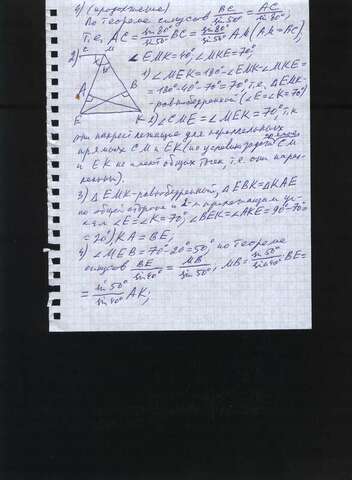 4) (продолжение)
По теореме синусов BC/sin50° = AC/sin80°,
т.е, AC = sin80°/sin50° BC = sin80°/sin50° AM (AM=AC),
2) C M ∠EMK=40°, ∠MKE=70°
A B E K
1) ∠MEK=180°-∠EMK-∠MKE=
=180°-40°-70°=70°, т.е, ΔEMK-
-равнобедренный (∠E=∠K=70°)
2) ∠CME=∠MEK=70°, т.к
это накрест лежащие для параллельных
прямых CM и EK (по условию задачи CM
и EK не имеют общих точек, т.е. они парал-
лельны).
3) ΔEMK-равнобедренный, ΔEBK=ΔKAE
по общей стороне и 2-м прилежащим уг-
лам ∠E=∠K=70°, ∠BEK=∠AKE=90°-70°=
=20°, KA=BE,
4) ∠MEB=70°-20°=50°, по теореме
синусов BE/sin40° = MB/sin50°, MB = sin50°/sin40° BE=
= sin50°/sin40° AK;